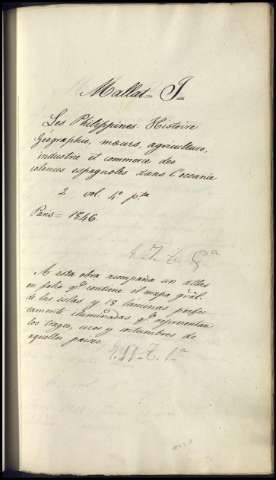 Mallat = J=
Les Philippines. Histoire
Géographie, mœurs, agriculture,
industrie et commerce des
colonies espagnoles dans l'oceanie
2 vol. 4º pta
Paris = 1846.
A esta obra acompaña un atlas
en folio qe contiene el mapa gral.
de las islas y 13 laminas perfec
tamente iluminadas qe representan
los trages, usos y costumbres de
aquellos paises.